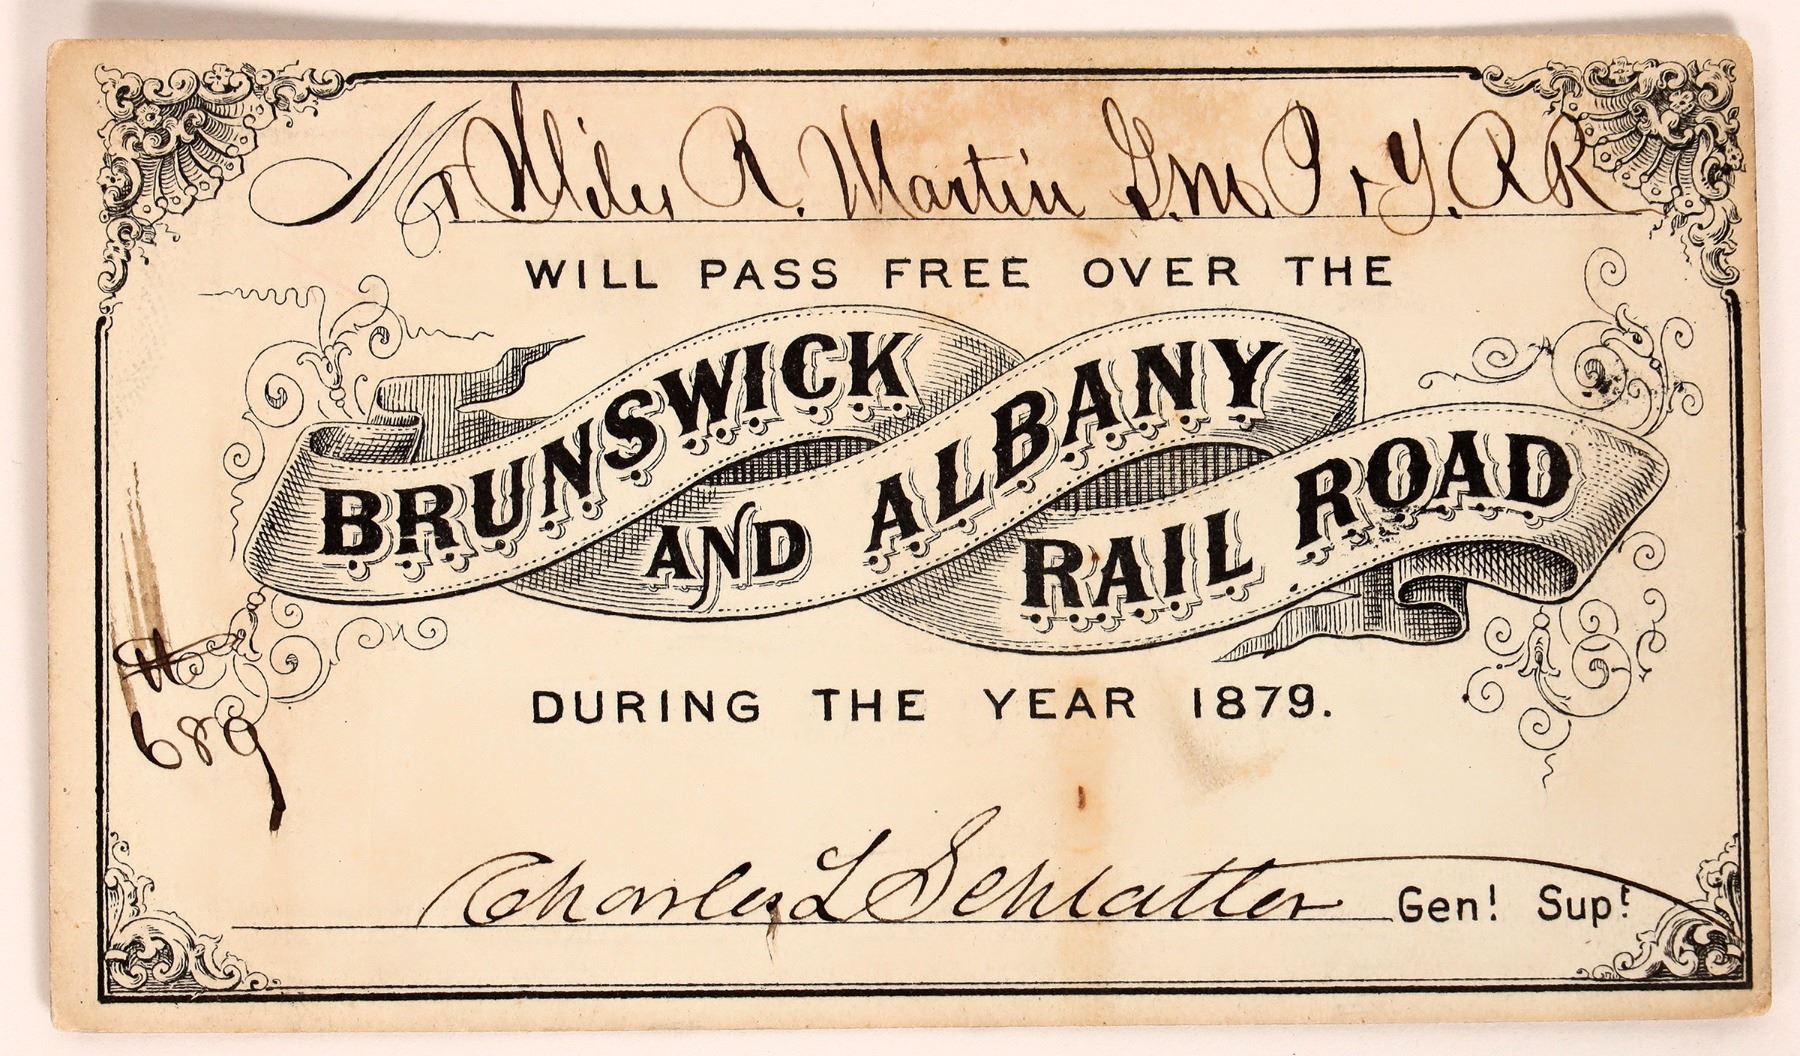 Mr Miles R. Martin G.M. P & Y. R R
WILL PASS FREE OVER THE
BRUNSWICK
AND ALBANY
RAIL ROAD
DURING THE YEAR 1879.
#
689
Charles L Schlatter Genl Supt